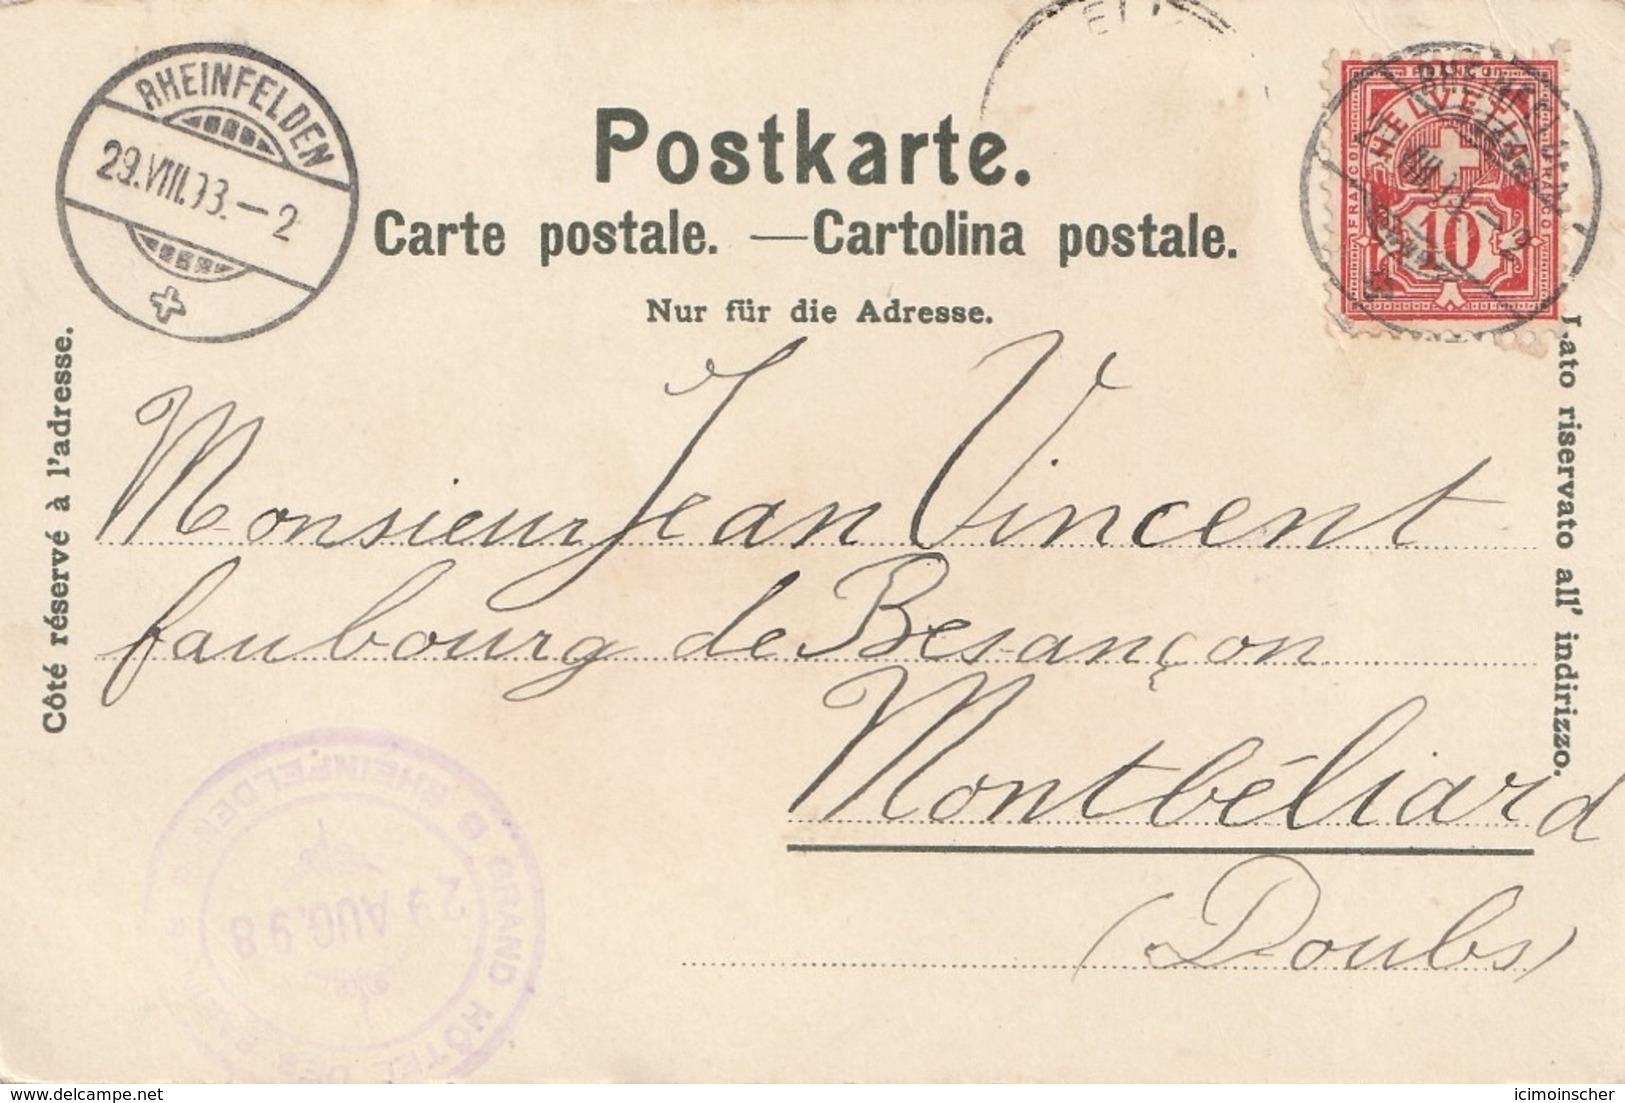 RHEINFELDEN
29.VIII.93.-2
Postkarte.
Carte postale. — Cartolina postale.
Nur für die Adresse.
FRANCO
HELVETIA
10
FRANCO
Côté réservé à l'adresse.
Lato riservato all' indirizzo.
Monsieur Jean Vincent
faubourg de Besançon
Montbéliard
(Doubs)
RHEINFELDEN
GRAND HÔTEL DES
29 AUG. 98
delcampe.net
icimoinscher